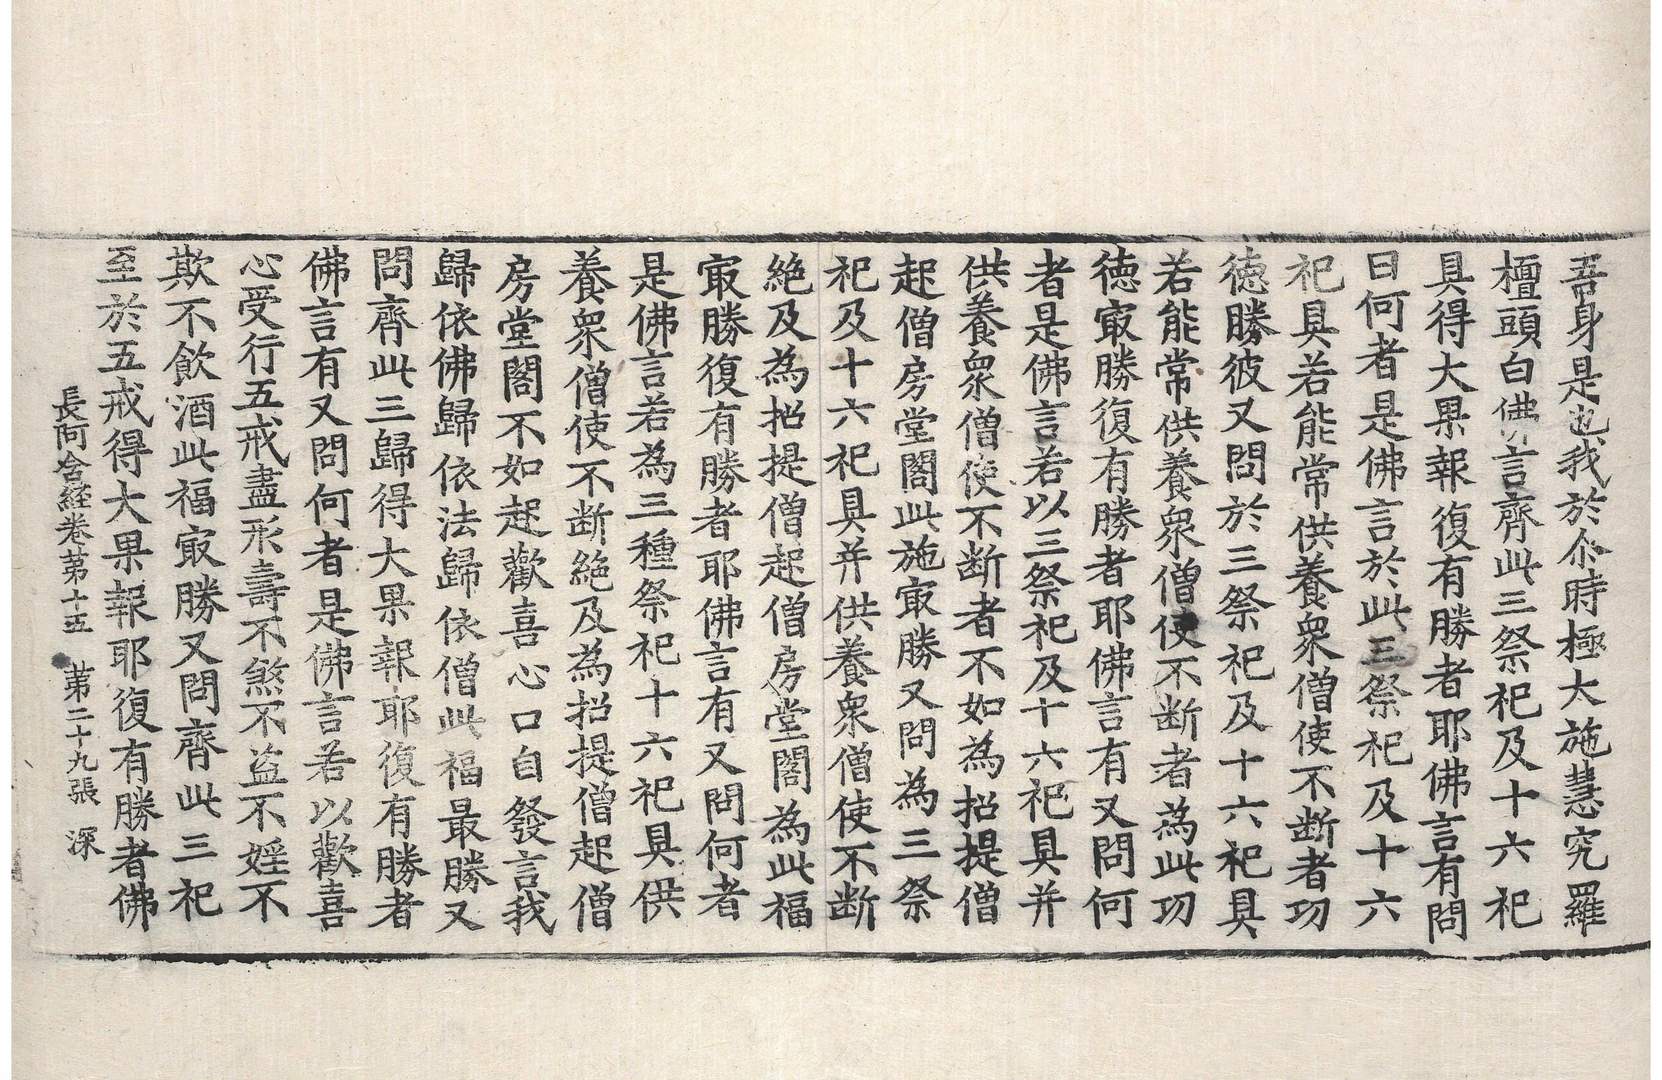 吾身是也我於尒時極大施慧究羅
檀頭白佛言齊此三祭祀及十六祀
具得大果報復有勝者耶佛言有問
曰何者是佛言於此三祭祀及十六
祀具若能常供養衆僧使不断者功
德勝彼又問於三祭祀及十六祀具
若能常供養衆僧使不断者為此功
德冣勝復有勝者耶佛言有又問何
者是佛言若以三祭祀及十六祀具并
供養衆僧使不断者不如為招提僧
起僧房堂閣此施冣勝又問為三祭
祀及十六祀具并供養衆僧使不断
絶及為招提僧起僧房堂閣為此福
冣勝復有勝者耶佛言有又問何者
是佛言若為三種祭祀十六祀具供
養衆僧使不断絶及為招提僧起僧
房堂閣不如起歡喜心口自發言我
歸依佛歸依法歸依僧此福最勝又
問齊此三歸得大果報耶復有勝者
佛言有又問何者是佛言若以歡喜
心受行五戒盡形壽不煞不盗不婬不
欺不飲酒此福冣勝又問齊此三祀
至於五戒得大果報耶復有勝者佛
長阿含經卷苐十五 苐二十九張 深